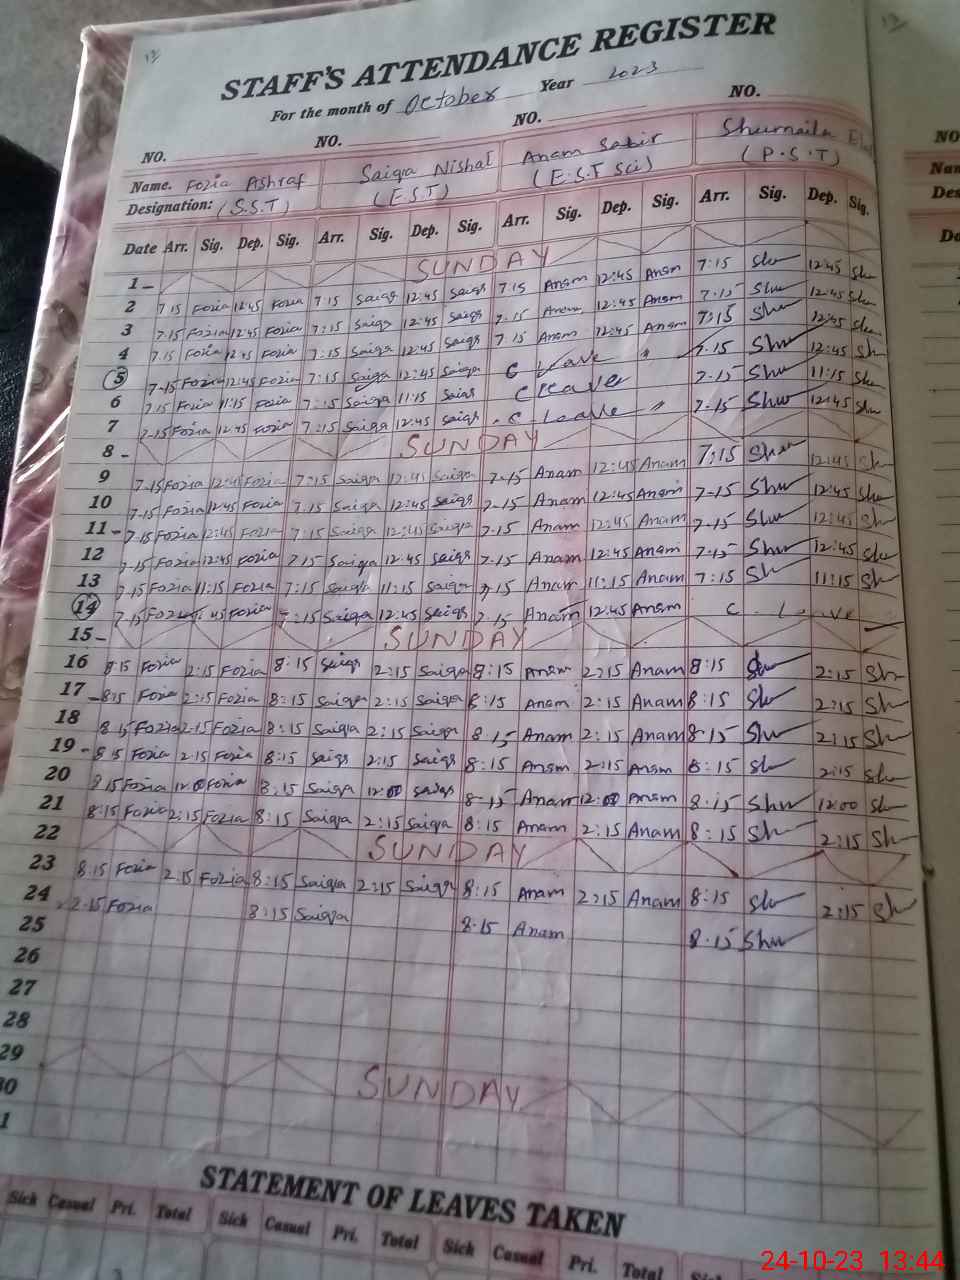 13
STAFF'S ATTENDANCE REGISTER
For the month of October Year 2023
NO. NO. NO. NO.
Name. Fozia Ashraf Saiqa Nishat Anam Sabir Shumaila
Designation: (S.S.T) (E.S.T) (E.S.T Sci) (P.S.T)
Date Arr. Sig. Dep. Sig. Arr. Sig. Dep. Sig. Arr. Sig. Dep. Sig. Arr. Sig. Dep. Sig.
1 - SUNDAY
2 7 15 Fozia 12:45 Fozia 7:15 Saiqa 12:45 Saiqa 7 15 Anam 12:45 Anam 7:15 Shu 12:45 Shu
3 7.15 Fozia 12:45 Fozia 7:15 Saiqa 12:45 Saiqa 7.15 Anam 12:45 Anam 7.15 Shu 12:45 Shu
4 7.15 Fozia 12:45 Fozia 7:15 Saiqa 12:45 Saiqa 7.15 Anam 12:45 Anam 7:15 Shu 12:45 Shu
5 7-15 Fozia 12:45 Fozia 7:15 Saiqa 12:45 Saiqa C leave " 7.15 Shu 12:45 Sh
6 7.15 Fozia 11:15 Fozia 7:15 Saiqa 11:15 Saiqa C leave 7-15 Shu 11:15 Shu
7 7-15 Fozia 12:45 Fozia 7:15 Saiqa 12:45 Saiqa C leave " 7-15 Shu 12:45 Shu
8 - SUNDAY
9 7-15 Fozia 12:45 Fozia 7:15 Saiqa 12:45 Saiqa 7-15 Anam 12:45 Anam 7:15 Shu 12:45 Shu
10 7-15 Fozia 12:45 Fozia 7:15 Saiqa 12:45 Saiqa 7-15 Anam 12:45 Anam 7-15 Shu 12:45 Shu
11 - 7-15 Fozia 12:45 Fozia 7:15 Saiqa 12:45 Saiqa 7.15 Anam 12:45 Anam 7-15 Shu 12:45 Sh
12 7-15 Fozia 12:45 Fozia 7 15 Saiqa 12:45 Saiqa 7.15 Anam 12:45 Anam 7-15 Shu 12:45 Shu
13 7.15 Fozia 11:15 Fozia 7:15 Saiqa 11:15 Saiqa 7.15 Anam 11:15 Anam 7:15 Sh 11:15 Sh
14 7.15 Fozia 45 Fozia 7:15 Saiqa 12:45 Saiqa 7.15 Anam 12:45 Anam C. Leave
15 - SUNDAY
16 8:15 Fozia 2:15 Fozia 8:15 Saiqa 2:15 Saiqa 8:15 Anam 2:15 Anam 8:15 Shu 2:15 Shu
17 - 8:15 Fozia 2:15 Fozia 8:15 Saiqa 2:15 Saiqa 8:15 Anam 2:15 Anam 8:15 Shu 2:15 Sh
18 8.15 Fozia 2-15 Fozia 8:15 Saiqa 2:15 Saiqa 8.15 Anam 2:15 Anam 8-15 Shu 2:15 Sh
19 - 8 15 Fozia 2:15 Fozia 8:15 Saiqa 2:15 Saiqa 8:15 Anam 2:15 Anam 8:15 Shu 2:15 Shu
20 8 15 Fozia 12:00 Fozia 8:15 Saiqa 12:00 Saiqa 8-15 Anam 12:00 Anam 8:15 Shu 12:00 Sh
21 8:15 Fozia 2:15 Fozia 8:15 Saiqa 2:15 Saiqa 8:15 Anam 2:15 Anam 8:15 Sh 2:15 Sh
22 SUNDAY
23 8:15 Fozia 2:15 Fozia 8:15 Saiqa 2:15 Saiqa 8:15 Anam 2:15 Anam 8:15 Shu 2:15 Sh
24 2.15 Fozia 8:15 Saiqa 8.15 Anam 8.15 Shu
25
26
27
28
29 SUNDAY
30
1
STATEMENT OF LEAVES TAKEN
Sick Casual Pri. Total Sick Casual Pri. Total Sick Casual Pri. Total Sick
24-10-23 13:44